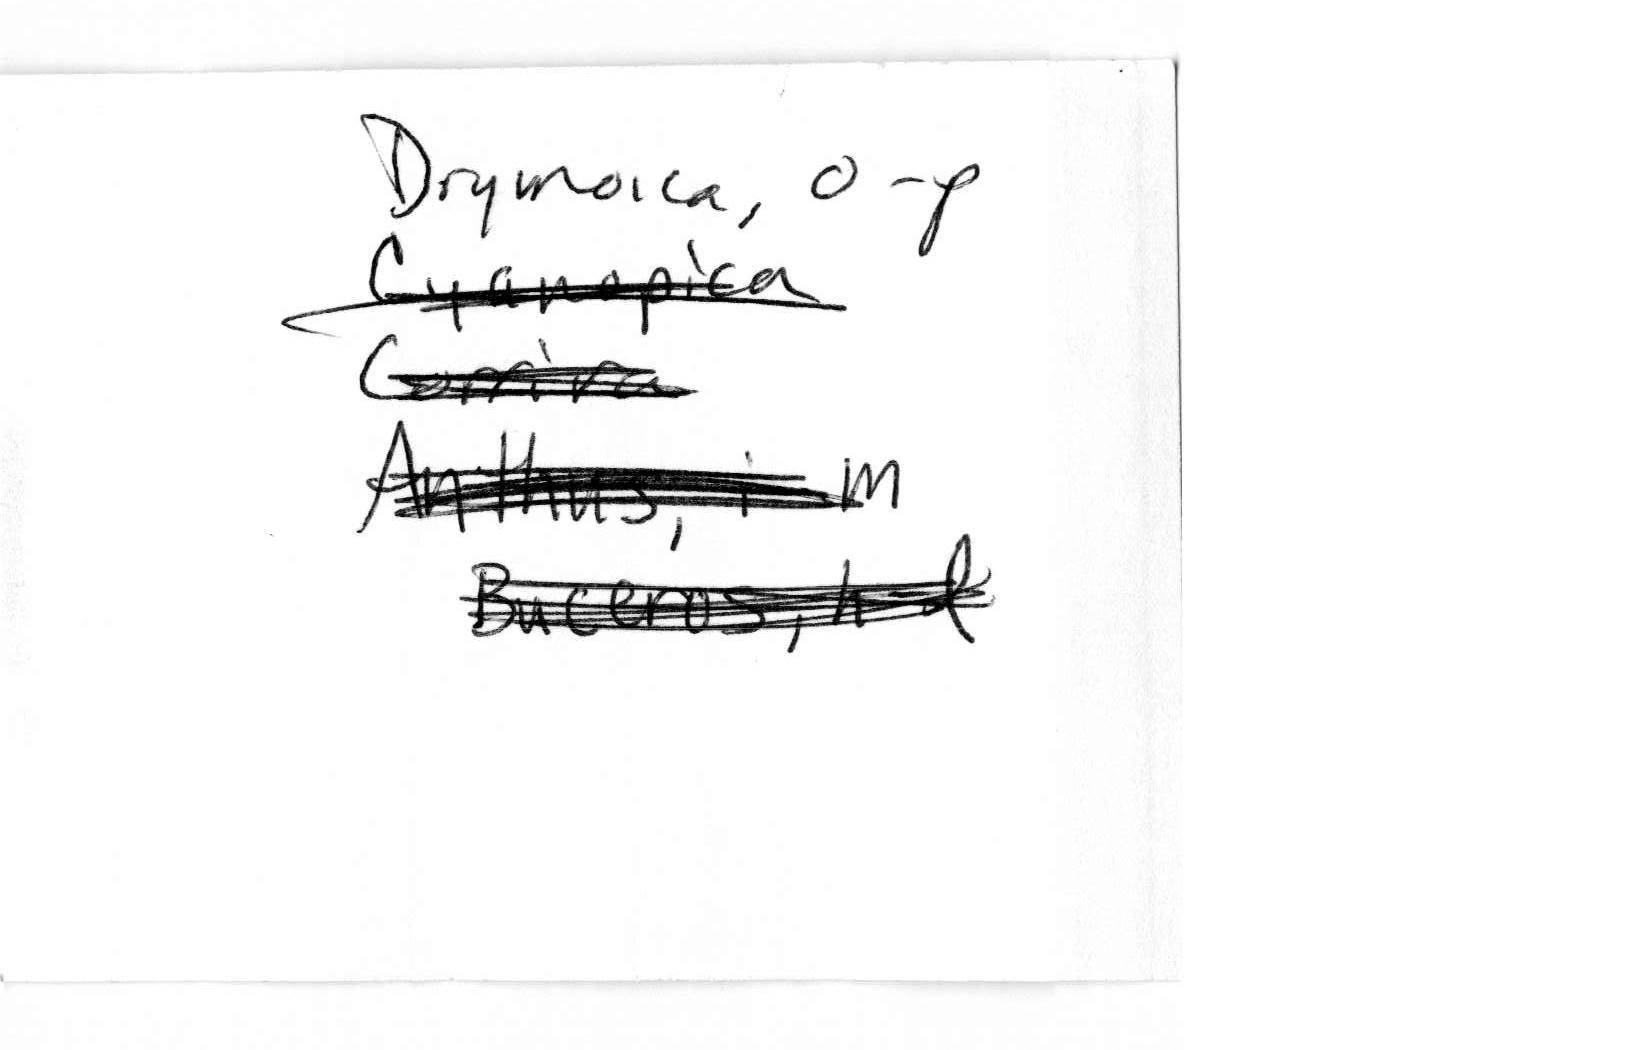 Drymoica, o-p
Cyanopica
Anthus, i m
Buceros, h-l